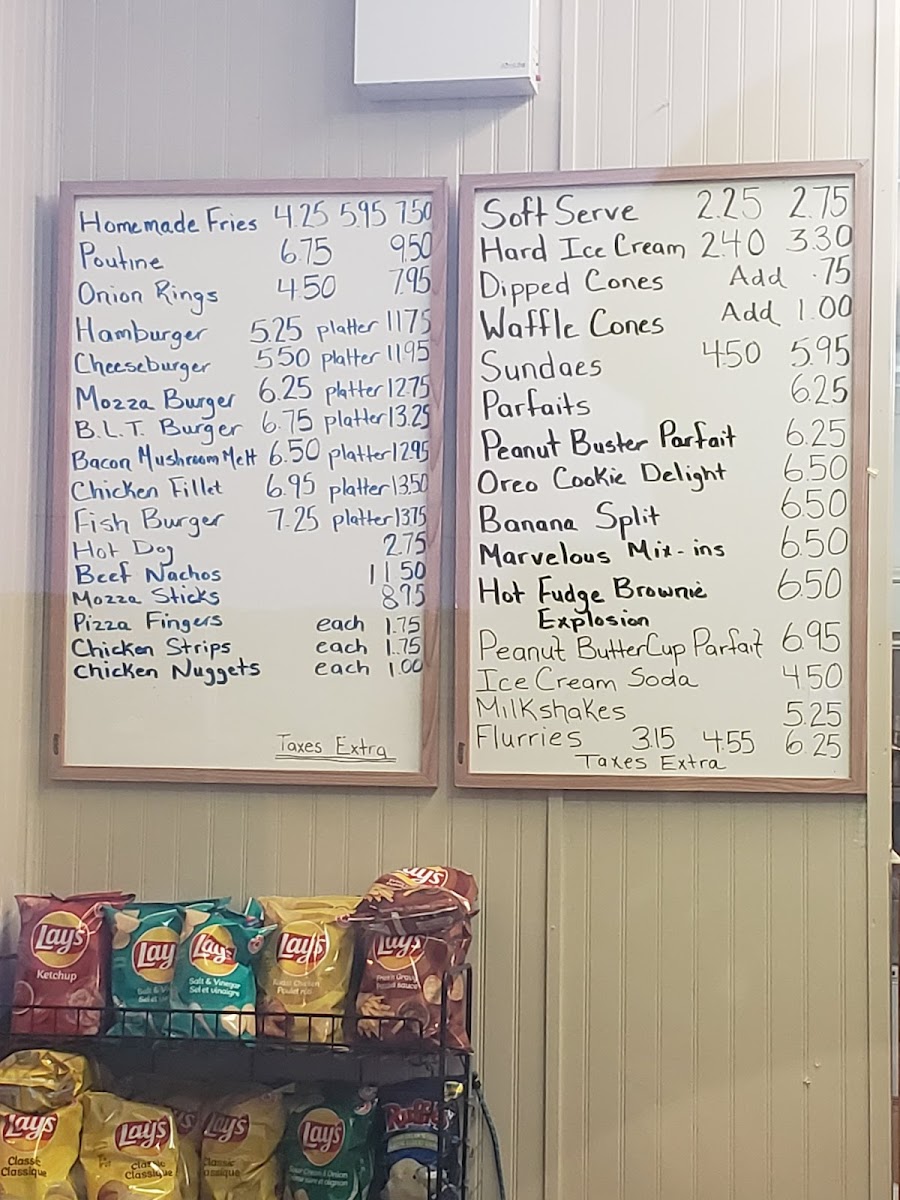 Homemade Fries 4.25 5.95 7.50
Poutine 6.75 9.50
Onion Rings 4.50 7.95
Hamburger 5.25 platter 11.75
Cheeseburger 5.50 platter 11.95
Mozza Burger 6.25 platter 12.75
B.L.T. Burger 6.75 platter 13.25
Bacon Mushroom Melt 6.50 platter 12.95
Chicken Fillet 6.95 platter 13.50
Fish Burger 7.25 platter 13.75
Hot Dog 2.75
Beef Nachos 11.50
Mozza Sticks 8.95
Pizza Fingers each 1.75
Chicken Strips each 1.75
Chicken Nuggets each 1.00
Taxes Extra
Soft Serve 2.25 2.75
Hard Ice Cream 2.40 3.30
Dipped Cones Add .75
Waffle Cones Add 1.00
Sundaes 4.50 5.95
Parfaits 6.25
Peanut Buster Parfait 6.25
Oreo Cookie Delight 6.50
Banana Split 6.50
Marvelous Mix-ins 6.50
Hot Fudge Brownie 6.50
Explosion
Peanut Butter Cup Parfait 6.95
Ice Cream Soda 4.50
Milkshakes 5.25
Flurries 3.15 4.55 6.25
Taxes Extra
Lay's
Ketchup
Lay
Salt & V
Sel et vi
Lay's
Salt & Vinegar
Sel et vinaigre
Lay's
Poulet rôti
Lay's
Lay's
Lay's
Classic
Classique
Lay's
Classic
Classique
Lay's
Classic
Lay's
Sour Cream & Onion
Ruffles